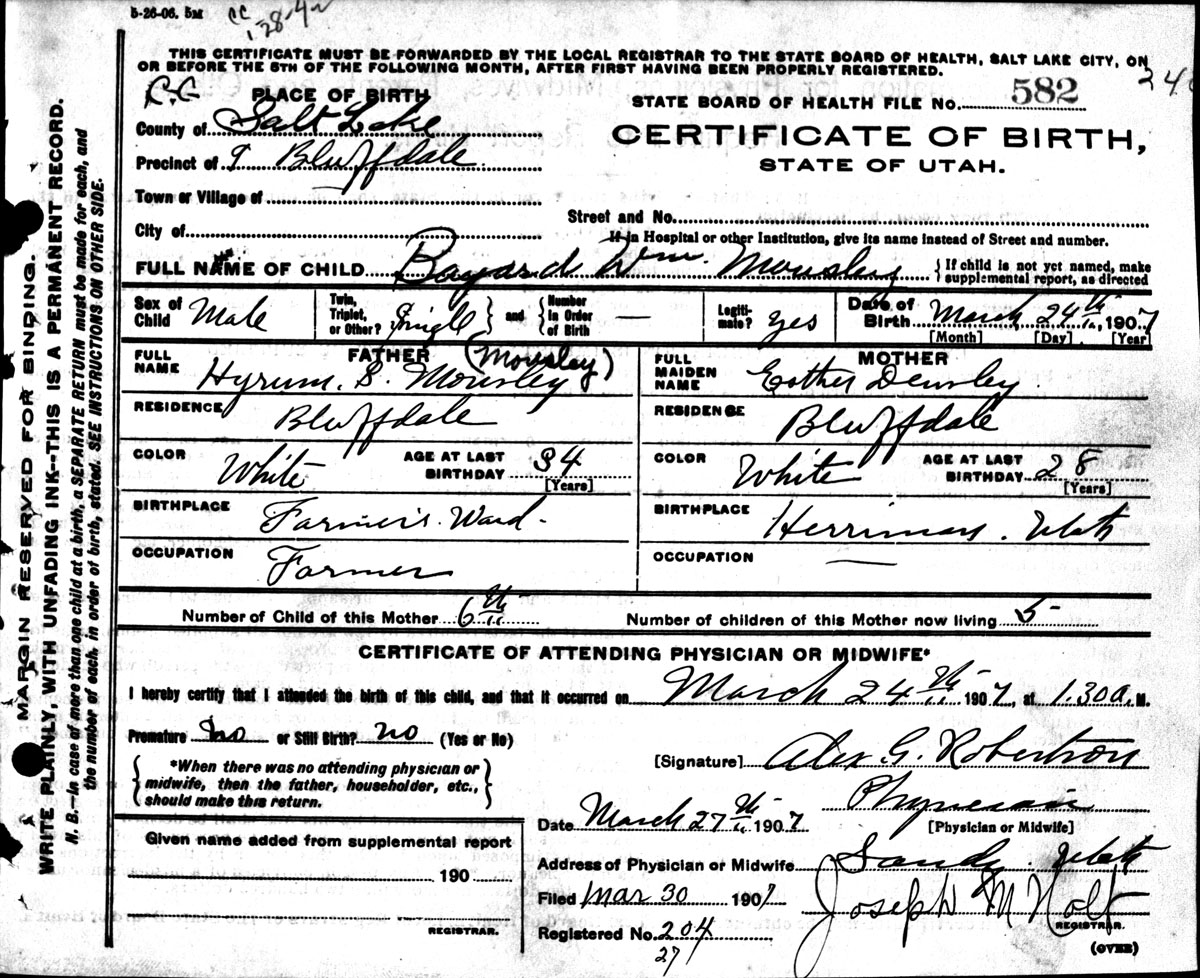 5-26-06. 5M
CC
1-28-42
THIS CERTIFICATE MUST BE FORWARDED BY THE LOCAL REGISTRAR TO THE STATE BOARD OF HEALTH, SALT LAKE CITY, ON
OR BEFORE THE 5TH OF THE FOLLOWING MONTH, AFTER FIRST HAVING BEEN PROPERLY REGISTERED.
C.C PLACE OF BIRTH
STATE BOARD OF HEALTH FILE No. 582
County of Salt Lake
CERTIFICATE OF BIRTH,
Precinct of Bluffdale
STATE OF UTAH.
Town or Village of
Street and No.
City of
If in Hospital or other Institution, give its name instead of Street and number.
FULL NAME OF CHILD Bayard Wm. Mousley { If child is not yet named, make
supplemental report, as directed
Sex of Child Male
Twin, Triplet, or Other? Single } and { Number in Order of Birth —
Legiti-mate? Yes
Date of Birth March 24th, 1907
[Month] [Day] [Year]
FATHER (Mousley)
FULL NAME Hyrum. S. Mousley
MOTHER
FULL MAIDEN NAME Esther Densley
RESIDENCE Bluffdale
RESIDENCE Bluffdale
COLOR White AGE AT LAST BIRTHDAY 34 [Years]
COLOR White AGE AT LAST BIRTHDAY 28 [Years]
BIRTHPLACE Farmer's Ward.
BIRTHPLACE Herriman. Utah
OCCUPATION Farmer
OCCUPATION —
Number of Child of this Mother 6th
Number of children of this Mother now living 5
CERTIFICATE OF ATTENDING PHYSICIAN OR MIDWIFE*
I hereby certify that I attended the birth of this child, and that it occurred on March 24th 1907, at 1.30 a. M.
Premature No or Still Birth? No (Yes or No)
{ *When there was no attending physician or
midwife, then the father, householder, etc.,
should make this return. }
[Signature] Alex G. Robertson
Physician
[Physician or Midwife]
Date March 27th 1907
Given name added from supplemental report
190
REGISTRAR.
Address of Physician or Midwife Sandy. Utah
Filed Mar 30 1907 Joseph M Holt
REGISTRAR.
Registered No. 204
27
(OVER)
MARGIN RESERVED FOR BINDING.
WRITE PLAINLY, WITH UNFADING INK--THIS IS A PERMANENT RECORD.
N. B.—In case of more than one child at a birth, a SEPARATE RETURN must be made for each, and
the number of each, in order of birth, stated. SEE INSTRUCTIONS ON OTHER SIDE.